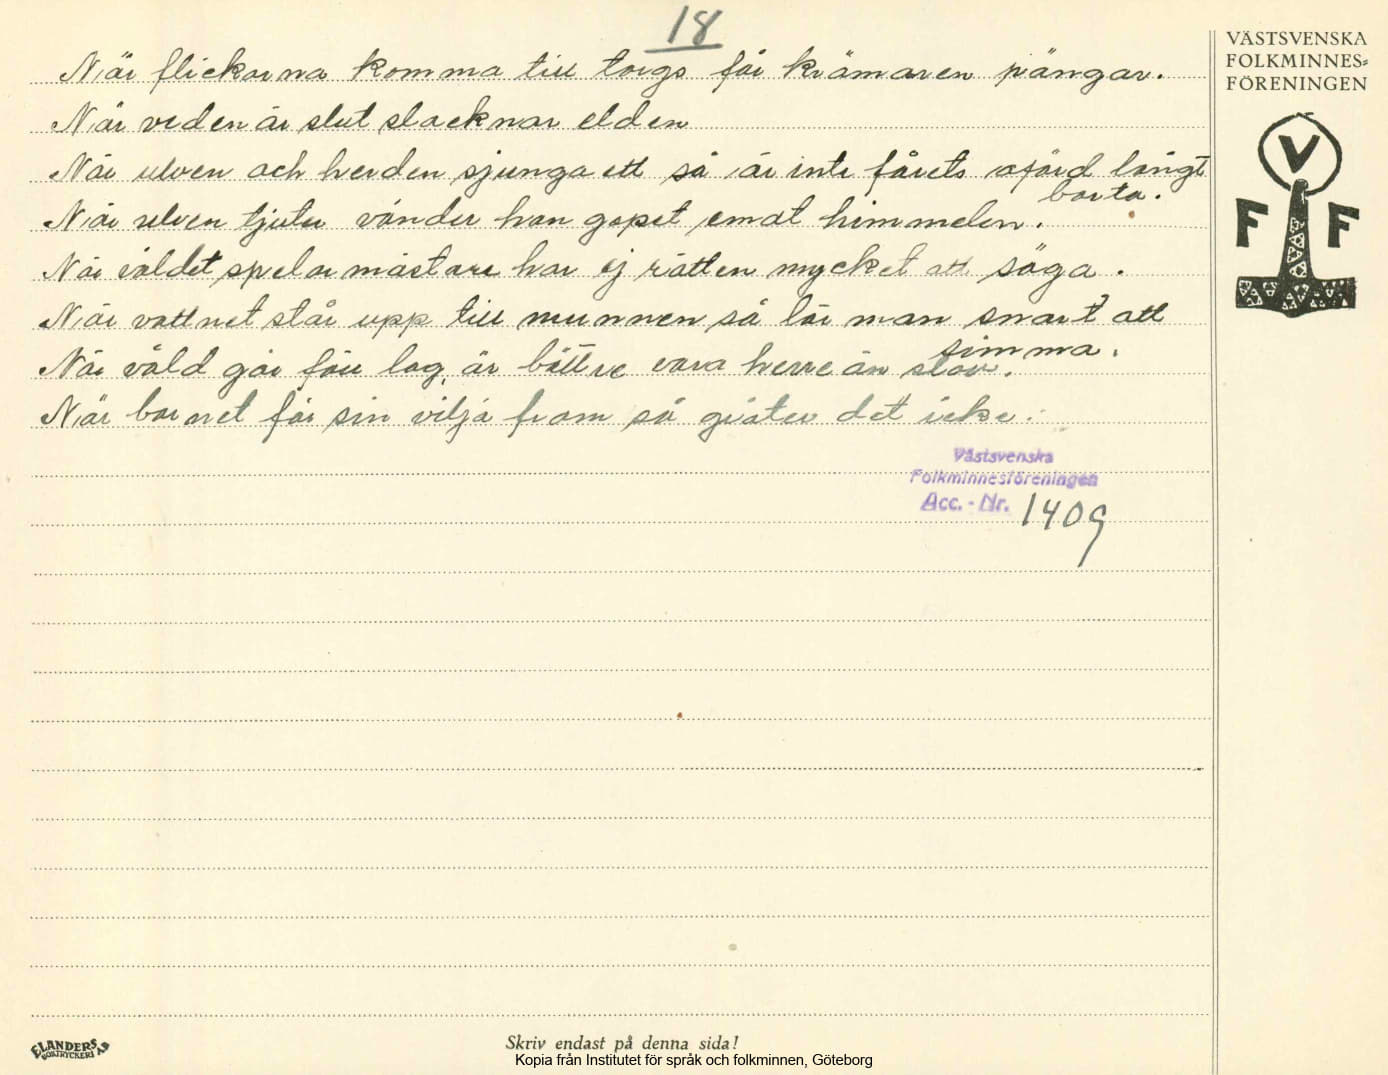 18
VÄSTSVENSKA
FOLKMINNES=
FÖRENINGEN
V
F F
När flickorna komma till torgs får krämaren pängar.
När veden är slut slacknar elden
När ulven och herden sjunga ett så är inte fårets ofärd långt
borta.
När ulven tjuter vänder han gapet emot himmelen.
När våldet spelar mästare har ej rätten mycket att säga.
När vattnet står upp till munnen så lär man snart att
simma.
När våld går för lag, är bättre vara herre än slav.
När barnet får sin vilja fram så gråter det icke.
Västsvenska
Folkminnesföreningen
Acc. - Nr. 1409
ELANDERS
BOKTRYCKERI AB
Skriv endast på denna sida!
Kopia från Institutet för språk och folkminnen, Göteborg